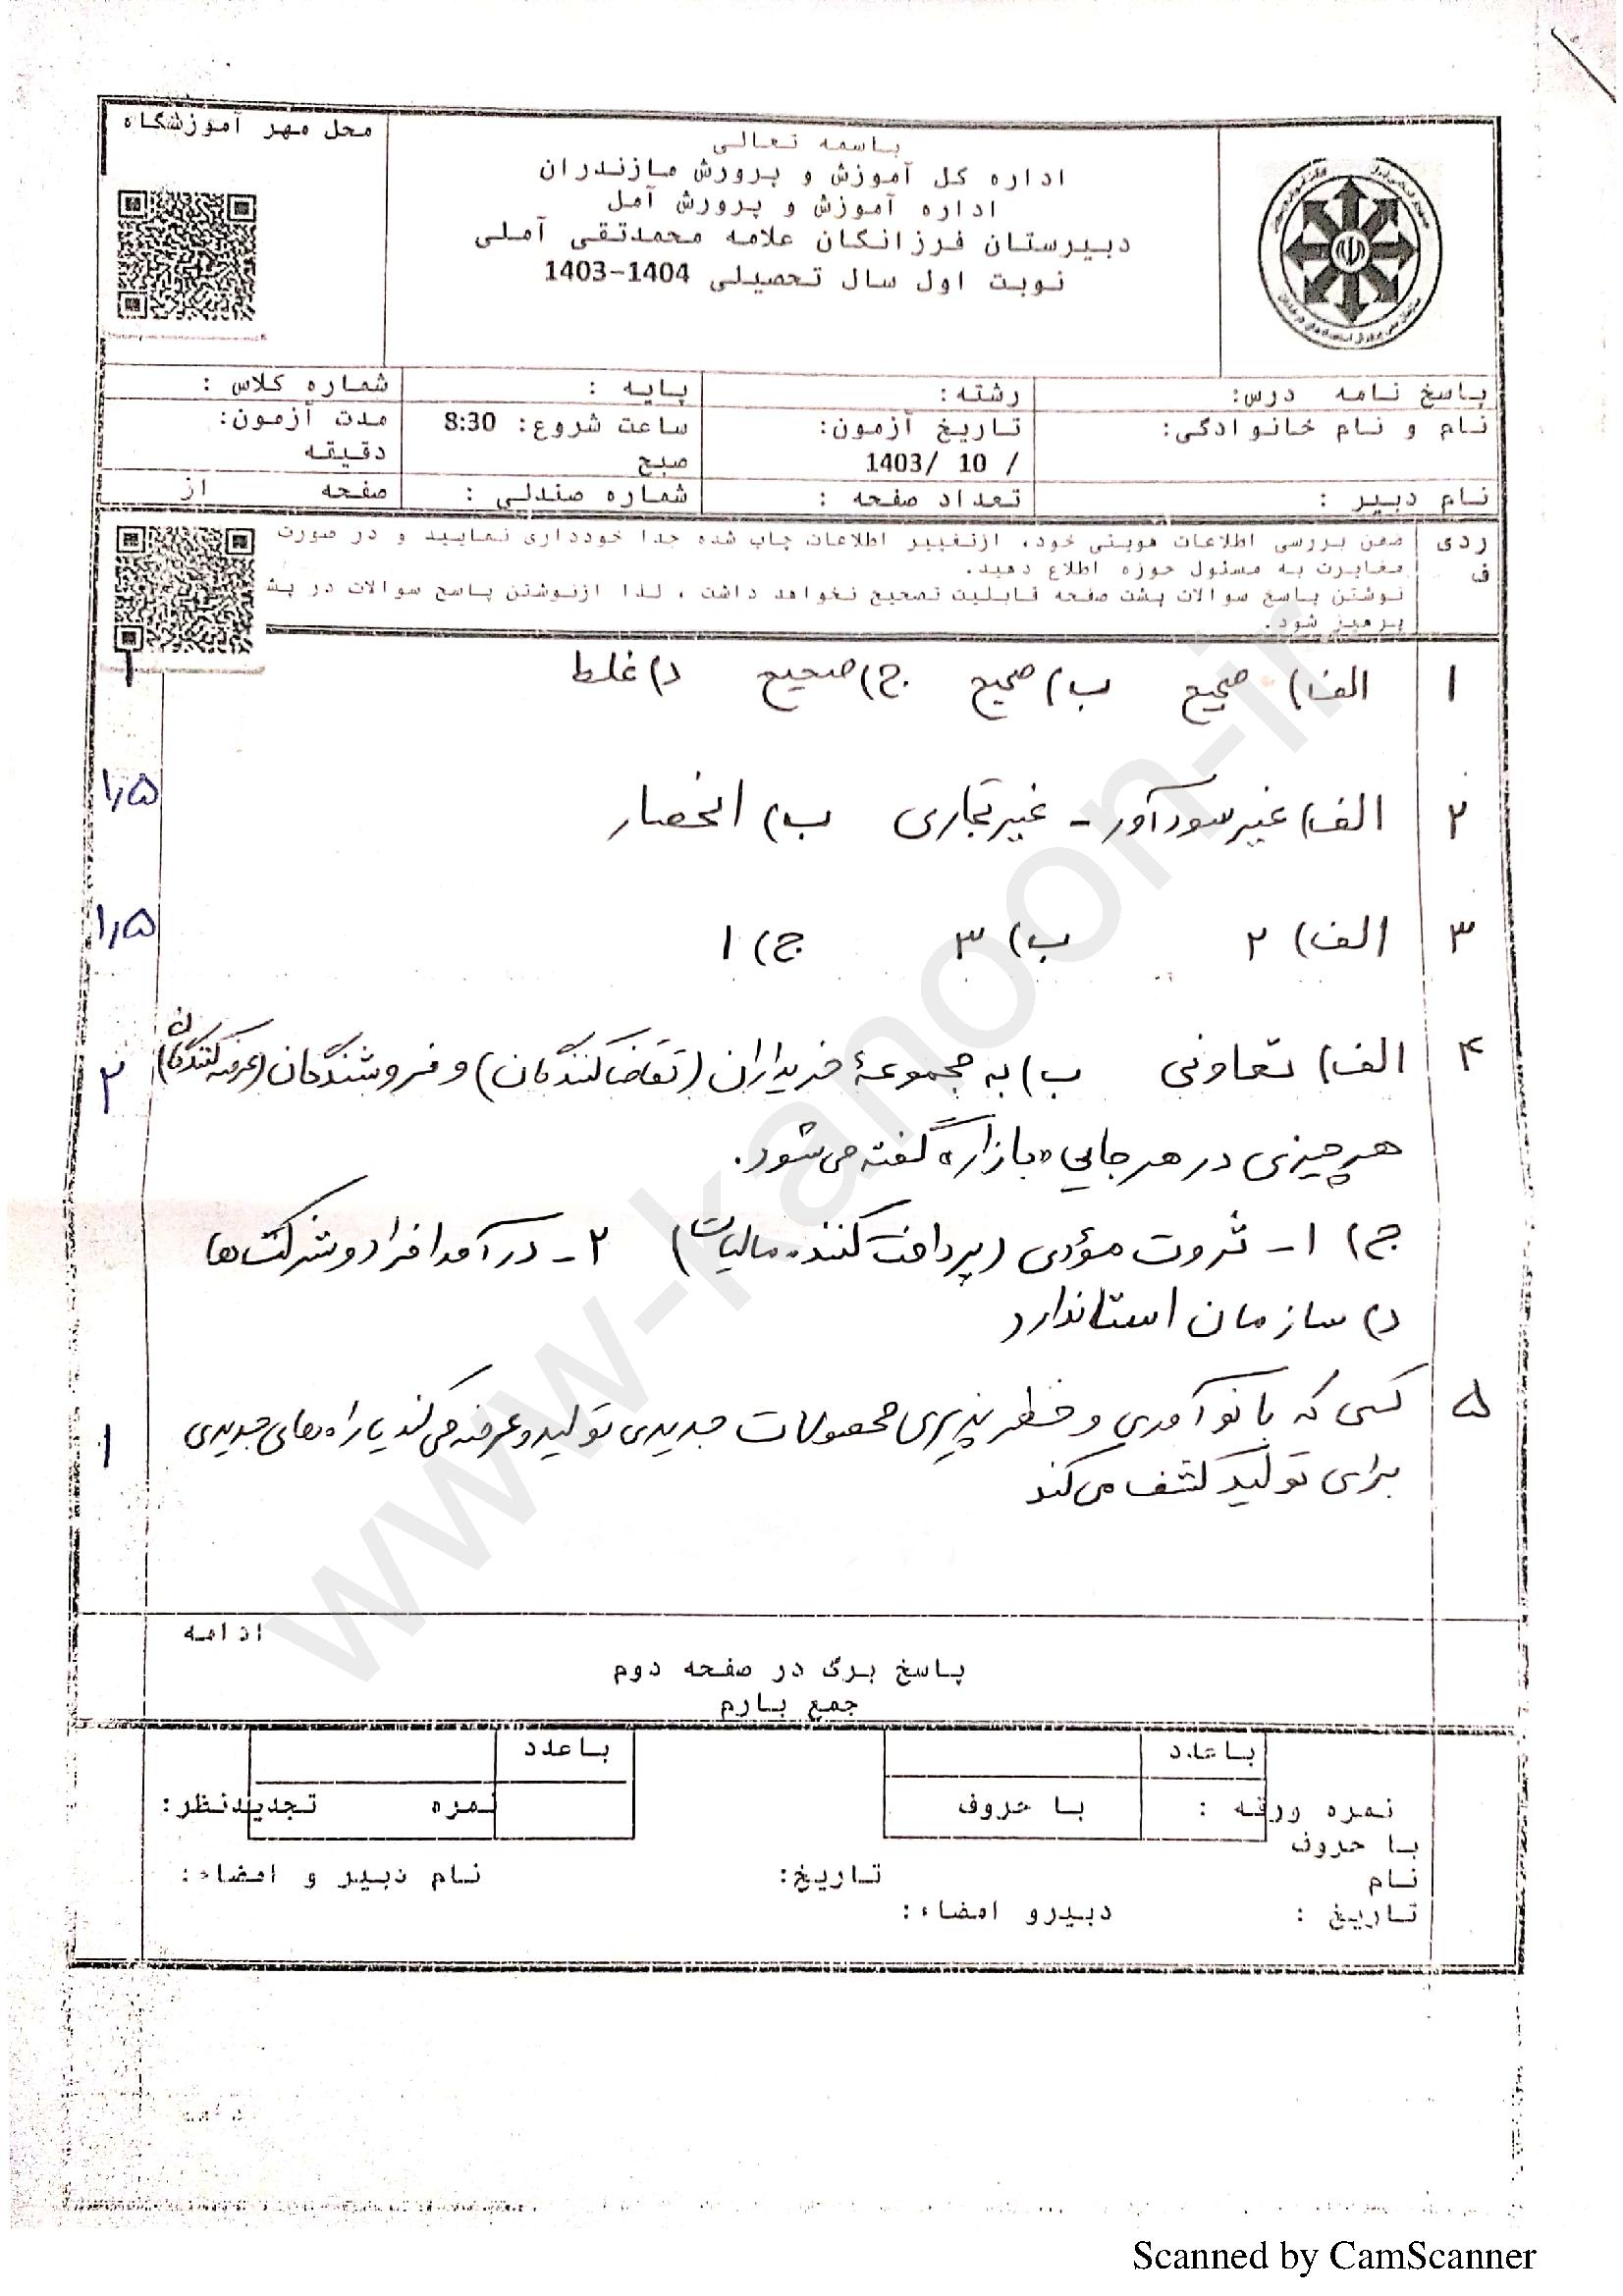 محل مهر آموزشگاه
باسمه تعالی
اداره کل آموزش و پرورش مازندران
اداره آموزش و پرورش آمل
دبیرستان فرزانگان علامه محمدتقی آملی
نوبت اول سال تحصیلی 1404-1403
پاسخ نامه درس: رشته: پایه : شماره کلاس :
نام و نام خانوادگی: تاریخ آزمون: ساعت شروع: 8:30 مدت آزمون:
/ 10 /1403 صبح دقیقه
نام دبیر : تعداد صفحه : شماره صندلی : صفحه از
ردی ضمن بررسی اطلاعات هویتی خود، ازتغییر اطلاعات چاپ شده جدا خودداری نمایید و در صورت
ف مغایرت به مسئول حوزه اطلاع دهید.
نوشتن پاسخ سوالات پشت صفحه قابلیت تصحیح نخواهد داشت ، لذا ازنوشتن پاسخ سوالات در پشت
پرهیز شود.
۱ الف) صحیح ب) صحیح ج) صحیح د) غلط ۱
۲ الف) غیرسودآور - غیرتجاری ب) انحصار ۱٫۵
۳ الف) ۲ ب) ۳ ج) ۱ ۱٫۵
۴ الف) تعاونی ب) به مجموعهٔ خریداران (تقاضاکنندگان) و فروشندگان (عرضه‌کنندگان) ۲
هرچیزی در هرجایی «بازار» گفته می‌شود.
ج) ۱- ثروت مؤدی (پرداخت‌کننده مالیات) ۲- درآمد افراد و شرکت‌ها
د) سازمان استاندارد
۵ کسی که با نوآوری و خطرپذیری محصولات جدیدی تولید و عرضه می‌کند یا راه‌های جدیدی ۱
برای تولید کشف می‌کند
ادامه
پاسخ برگ در صفحه دوم
جمع بارم
باعدد باعدد
نمره ورقه : با حروف نمره تجدیدنظر:
با حروف
نام تاریخ: نام دبیر و امضاء:
تاریخ : دبیرو امضاء:
www-kanoon-ir
Scanned by CamScanner